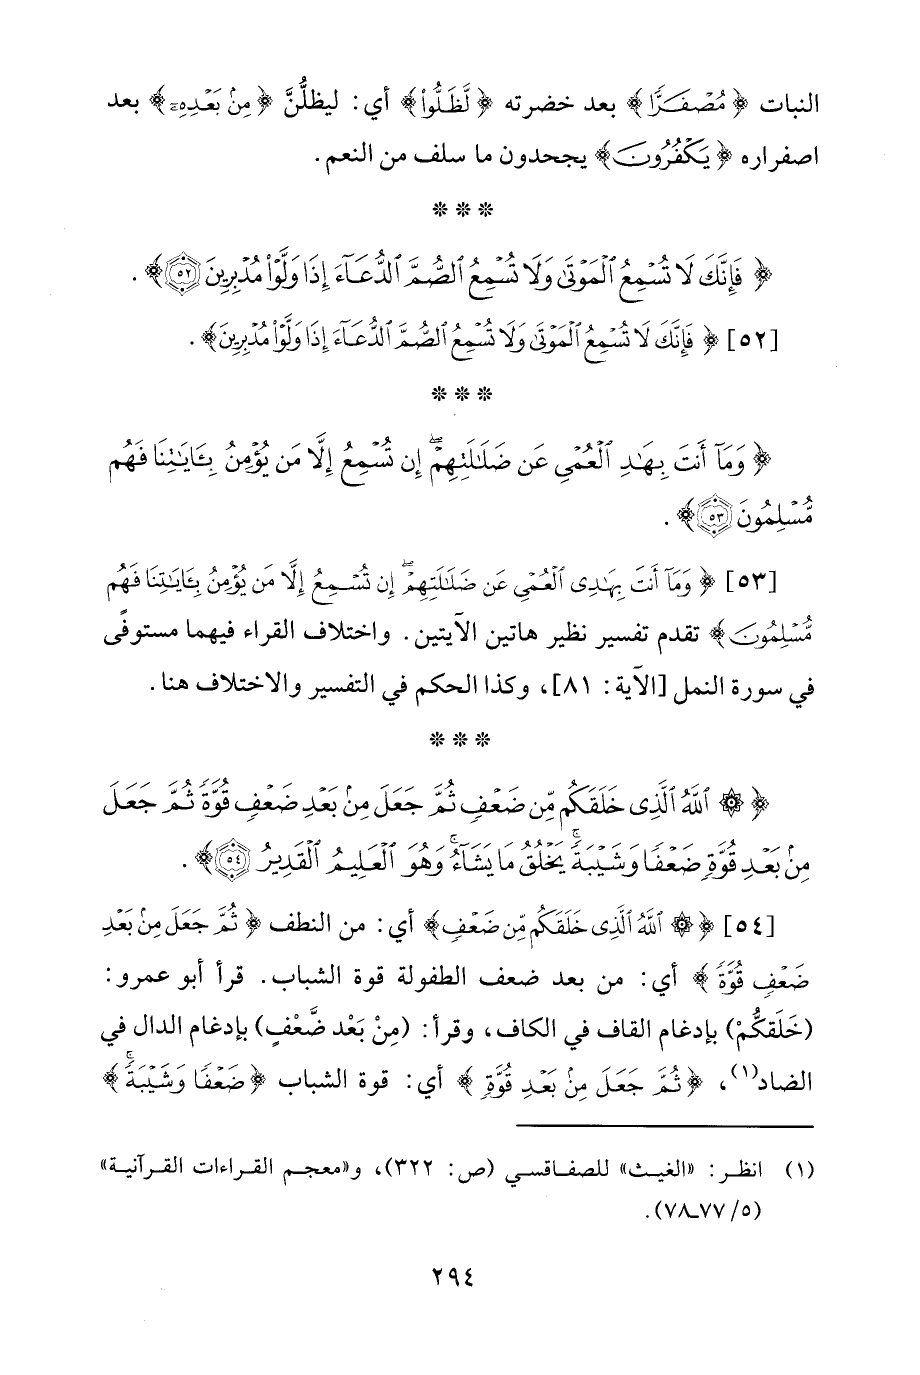 النبات ﴿مُصْفَرًّا﴾ بعد خضرته ﴿لَّظَلُّوا۟﴾ أي: ليظلُّنَّ ﴿مِنۢ بَعْدِهِۦ﴾ بعد
اصفراره ﴿يَكْفُرُونَ﴾ يجحدون ما سلف من النعم.
* * *
﴿فَإِنَّكَ لَا تُسْمِعُ ٱلْمَوْتَىٰ وَلَا تُسْمِعُ ٱلصُّمَّ ٱلدُّعَآءَ إِذَا وَلَّوْا۟ مُدْبِرِينَ ٥٢﴾.
[٥٢] ﴿فَإِنَّكَ لَا تُسْمِعُ ٱلْمَوْتَىٰ وَلَا تُسْمِعُ ٱلصُّمَّ ٱلدُّعَآءَ إِذَا وَلَّوْا۟ مُدْبِرِينَ﴾.
* * *
﴿وَمَآ أَنتَ بِهَٰدِ ٱلْعُمْىِ عَن ضَلَٰلَتِهِمْ ۖ إِن تُسْمِعُ إِلَّا مَن يُؤْمِنُ بِـَٔايَٰتِنَا فَهُم
مُّسْلِمُونَ ٥٣﴾.
[٥٣] ﴿وَمَآ أَنتَ بِهَٰدِى ٱلْعُمْىِ عَن ضَلَٰلَتِهِمْ ۖ إِن تُسْمِعُ إِلَّا مَن يُؤْمِنُ بِـَٔايَٰتِنَا فَهُم
مُّسْلِمُونَ﴾ تقدم تفسير نظير هاتين الآيتين. واختلاف القراء فيهما مستوفًى
في سورة النمل [الآية: ٨١]، وكذا الحكم في التفسير والاختلاف هنا.
* * *
﴿۞ ٱللَّهُ ٱلَّذِى خَلَقَكُم مِّن ضَعْفٍ ثُمَّ جَعَلَ مِنۢ بَعْدِ ضَعْفٍ قُوَّةً ثُمَّ جَعَلَ
مِنۢ بَعْدِ قُوَّةٍ ضَعْفًا وَشَيْبَةً ۚ يَخْلُقُ مَا يَشَآءُ ۚ وَهُوَ ٱلْعَلِيمُ ٱلْقَدِيرُ ٥٤﴾.
[٥٤] ﴿۞ ٱللَّهُ ٱلَّذِى خَلَقَكُم مِّن ضَعْفٍ﴾ أي: من النطف ﴿ثُمَّ جَعَلَ مِنۢ بَعْدِ
ضَعْفٍ قُوَّةً﴾ أي: من بعد ضعف الطفولة قوة الشباب. قرأ أبو عمرو:
(خَلَقكُّمْ) بإدغام القاف في الكاف، وقرأ: (مِنْ بَعْد ضَّعْفٍ) بإدغام الدال في
الضاد(١)، ﴿ثُمَّ جَعَلَ مِنۢ بَعْدِ قُوَّةٍ﴾ أي: قوة الشباب ﴿ضَعْفًا وَشَيْبَةً ۚ﴾
(١) انظر: «الغيث» للصفاقسي (ص: ٣٢٢)، و«معجم القراءات القرآنية»
(٥/ ٧٧ـ٧٨).
٢٩٤